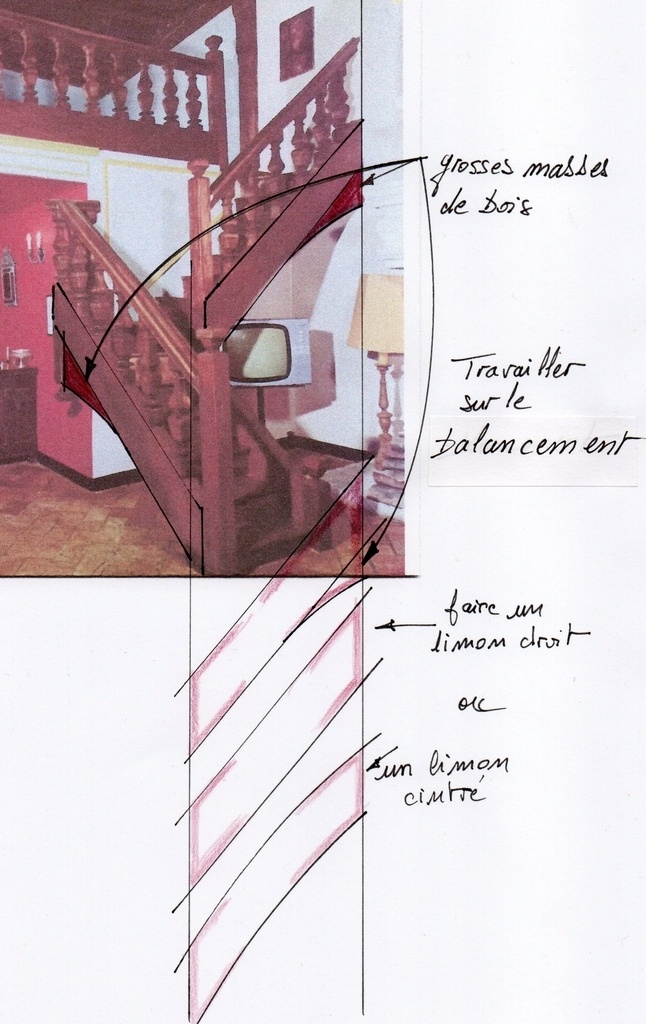 grosses masses
de bois
Travailler
sur le
balancement
faire un
limon droit
ou
un limon
cintré